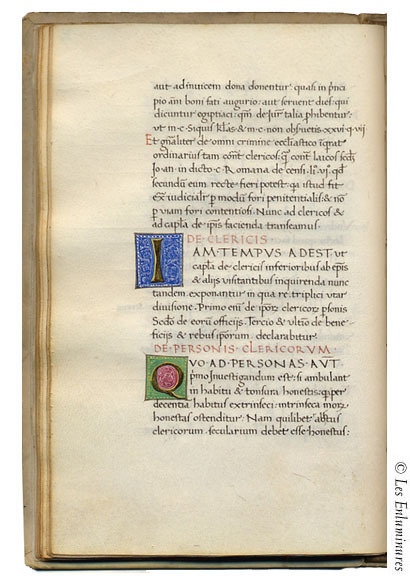 aut adinuicem dona donentur quasi in pnci
pio ani boni fati augurio: aut seruent dies qui
dicuntur egiptiaci: qm de iure talia phibentur
ut m. c. Siquis klas & m. c. non obseruetis. xxvi. q. vii
Et gnaliter de omni crimine ecclastico iqrat
ordinarius tam cont clericos q cont laicos scd
Jo. an. in dicto c. Romana de censi. li. vi. qd
secundu eum recte fieri potest: qa istud fit
ex iudicialr p modu fori penitentialis: & no
p uiam fori contentiosi. Nunc ad clericos &
ad capla de ipis facienda transeamus.
DE CLERICIS
IAM TEMPVS ADEST ut
capla de clericis inferioribus ab epis
& alijs uisitantibus inquirenda nunc
tandem exponantur in qua re triplici utar
diuisione. Primo eni de ipor clericor psonis
Scdo de eoru officijs. Tercio & ultio de bene
ficijs & rebus ipsorum declarabitur.
DE PERSONIS CLERICORVM
QVO AD PERSONAS AVT
pmo Inuestigandum est: si ambulant
in habitu & tonsura honestis: qr per
decentia habitus extrinseci: intrinseca mor
honestas ostenditur. Nam quilibet abstus
clericorum secularium debet esse honestus:
© Les Enluminures